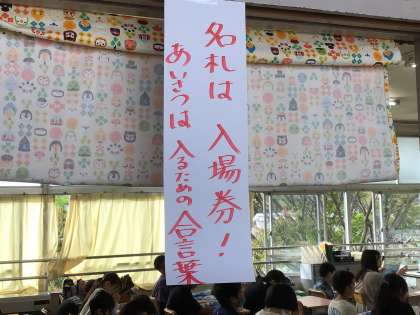 名札は 入場券！
あいさつは 入るための 合言葉